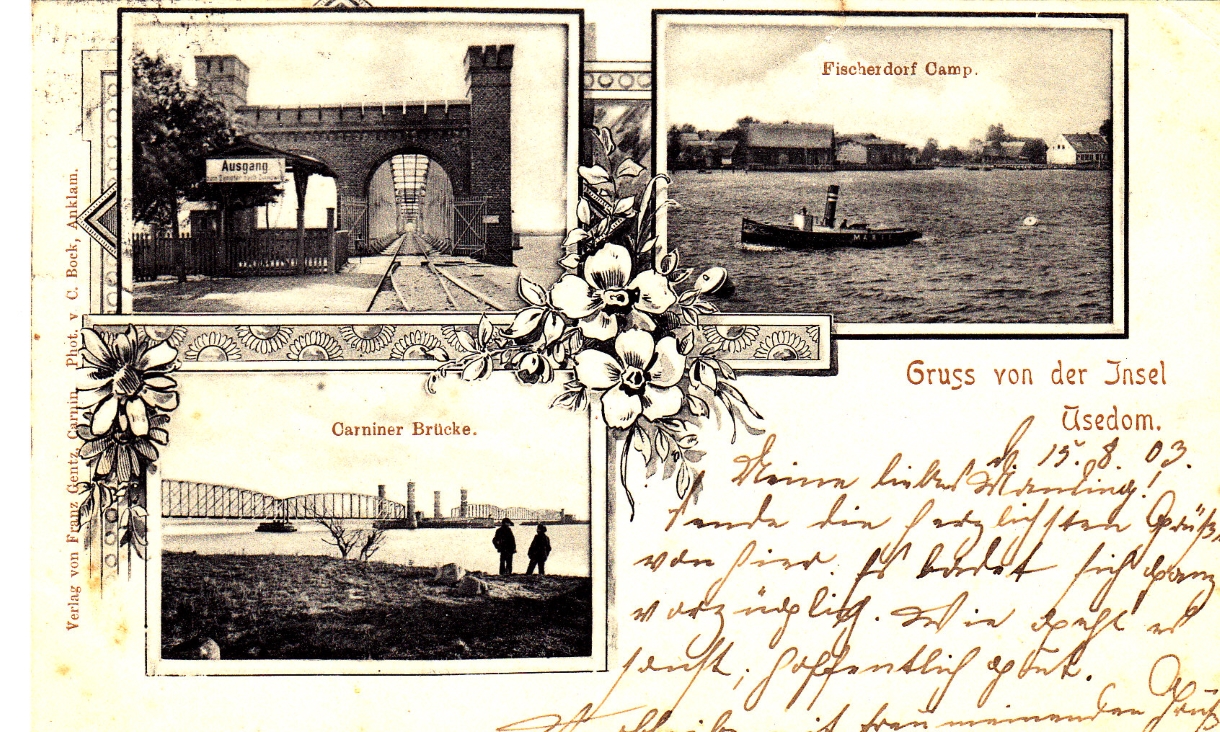 Ausgang
Fischerdorf Camp.
MARTHA
Carniner Brücke.
Verlag von Franz Gentz, Carnin. Phot. v. C. Bock, Anklam.
Gruss von der Insel
Usedom.
d. 15. 8. 03.
Meine liebe
sende die herzlichsten Grüße
von hier. Es badet sich ganz
vorzüglich. Wie geht es
sonst, hoffentlich gut.
mit freu